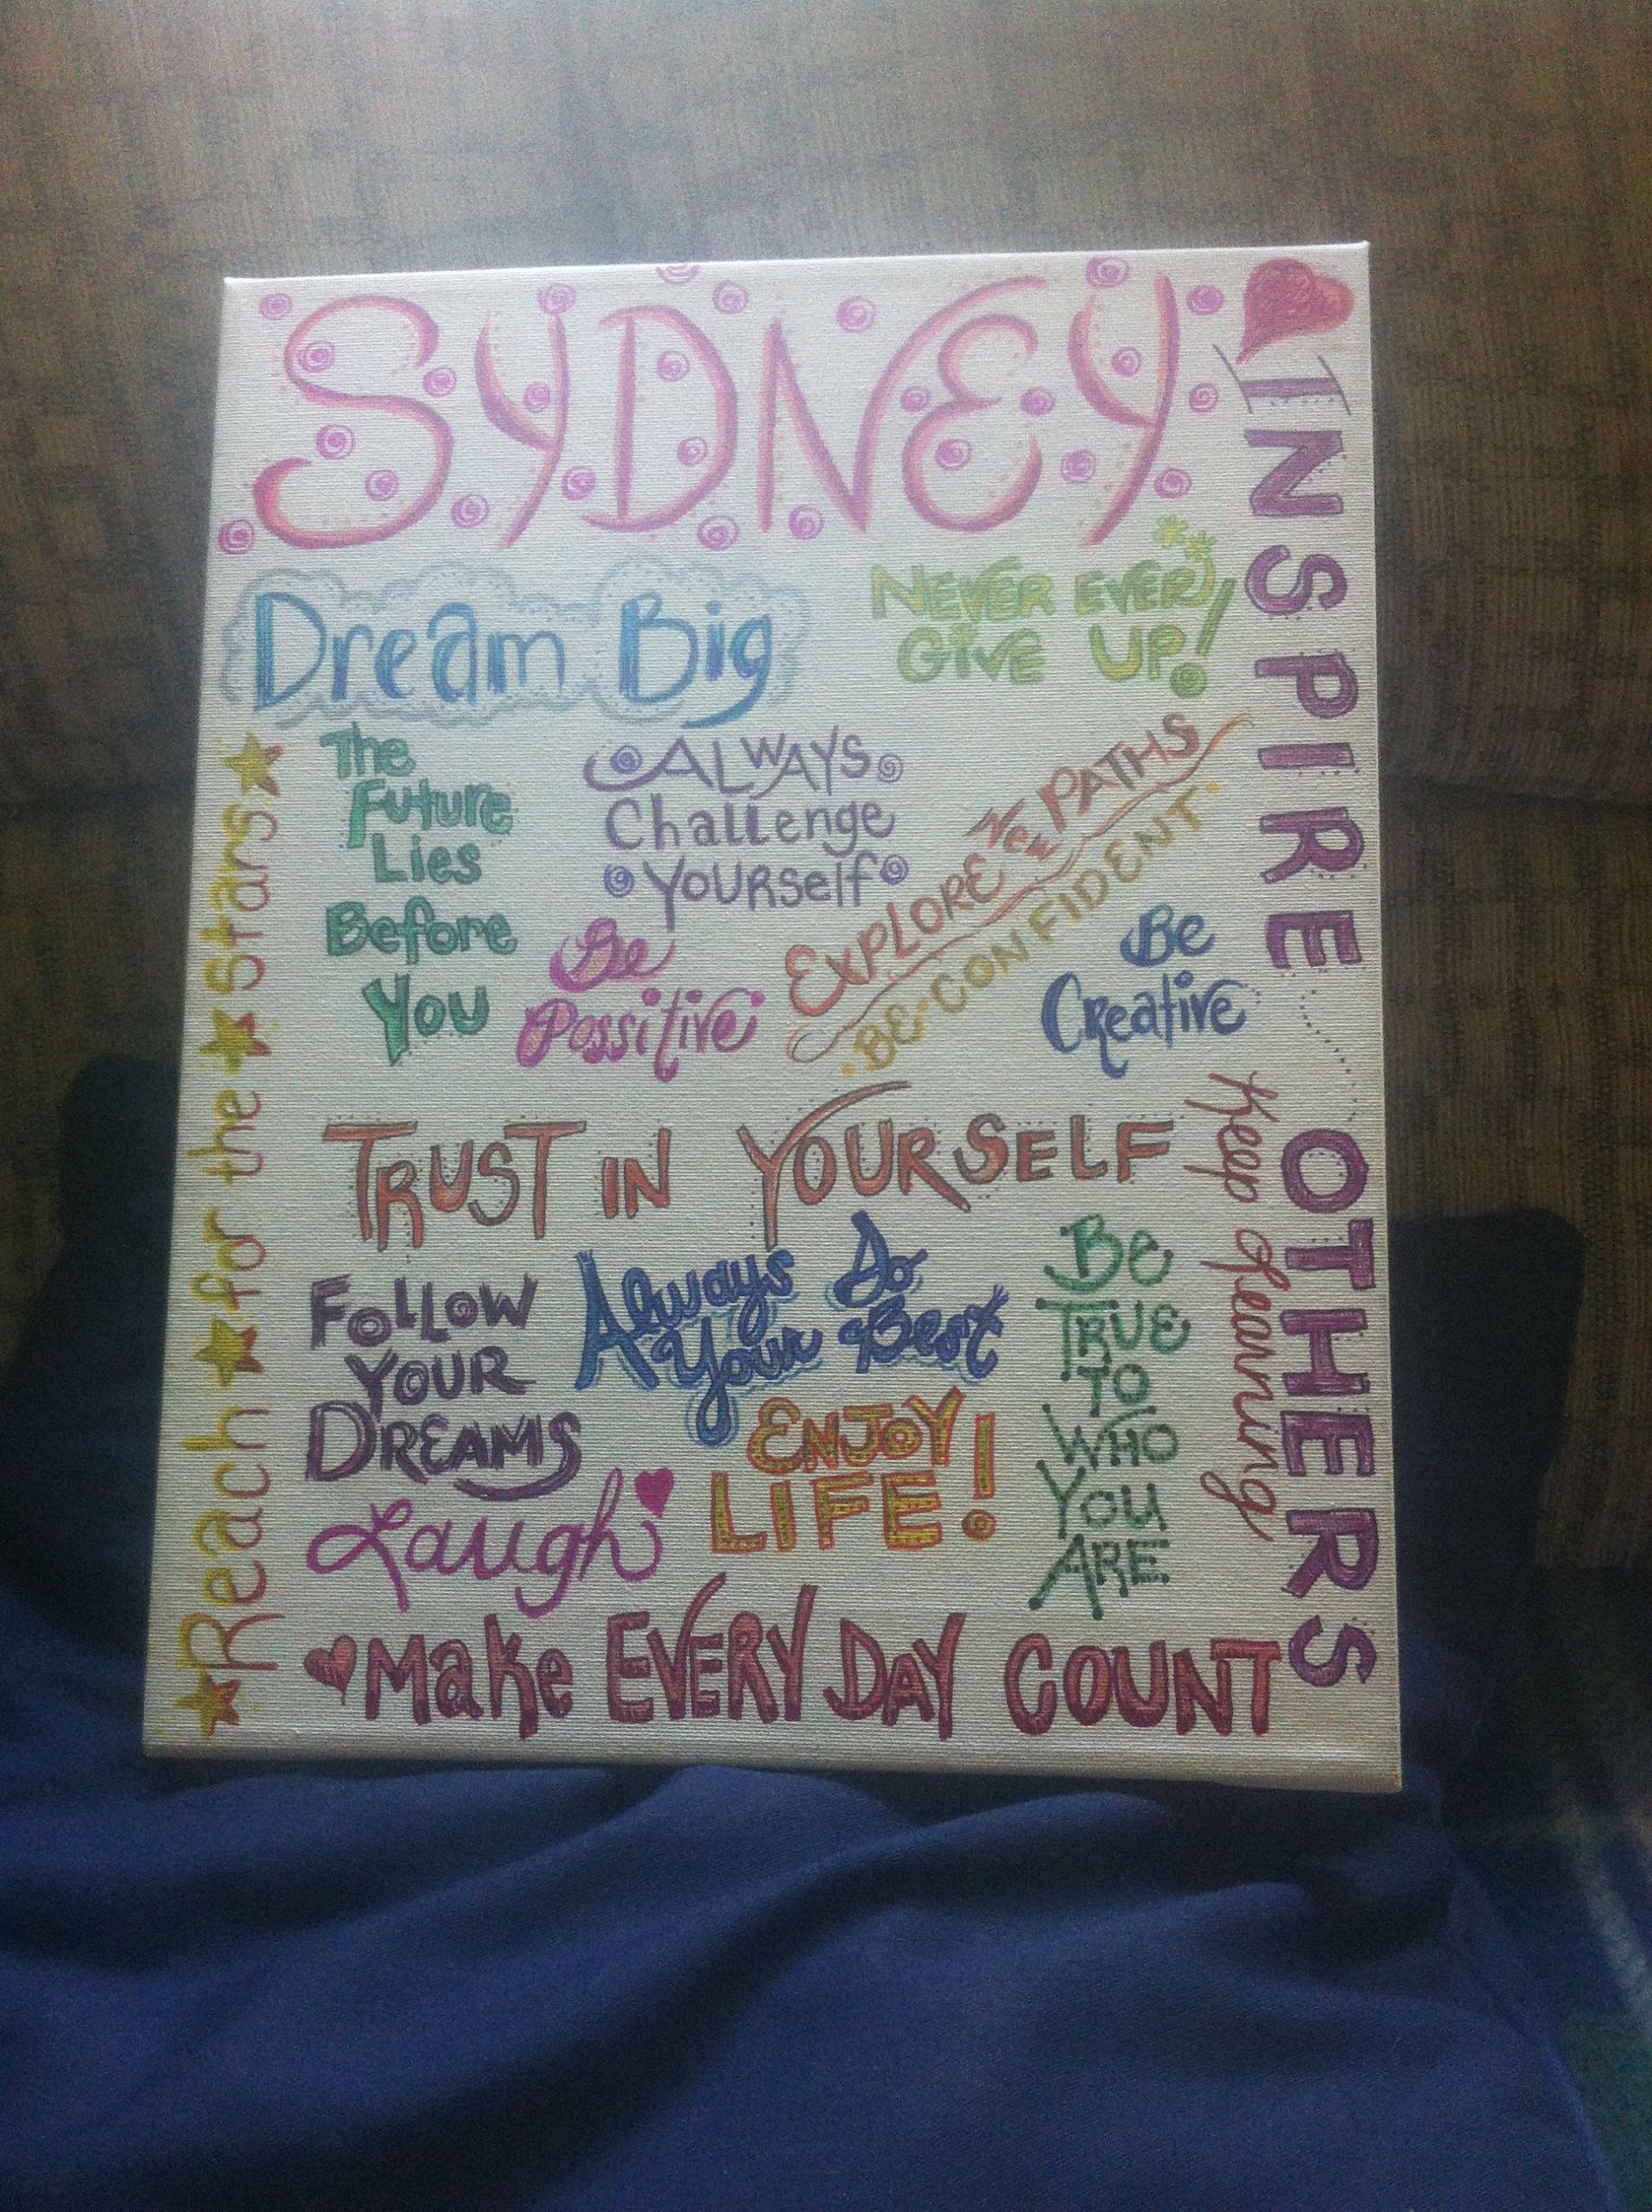 SYDNEY
INSPIRE OTHERS
Dream Big
NEVER EVER
GIVE UP!
Reach for the Stars
The
Future
Lies
Before
You
ALWAYS
Challenge
YOURself
EXPLORE NEW PATHS
BE CONFIDENT
Be
Possitive
Be
Creative
TRUST IN YOURSELF
Keep Learning
FOLLOW
YOUR
DREAMS
Always Do
Your Best
Be
TRUE
TO
WHO
YOU
ARE
ENJOY
LIFE!
Laugh
Make EVERY DAY COUNT